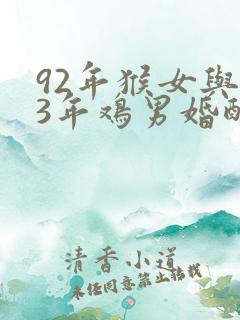 92年猴女與
3年鸡男婚配
清香小道
未经同意禁止转载